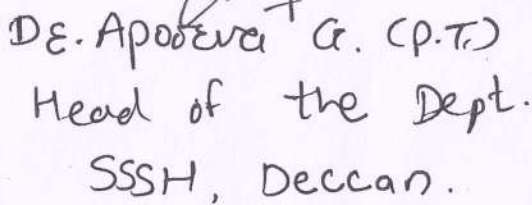 Dr. Apoorva G. (P.T.)
Head of the Dept.
SSSH, Deccan.